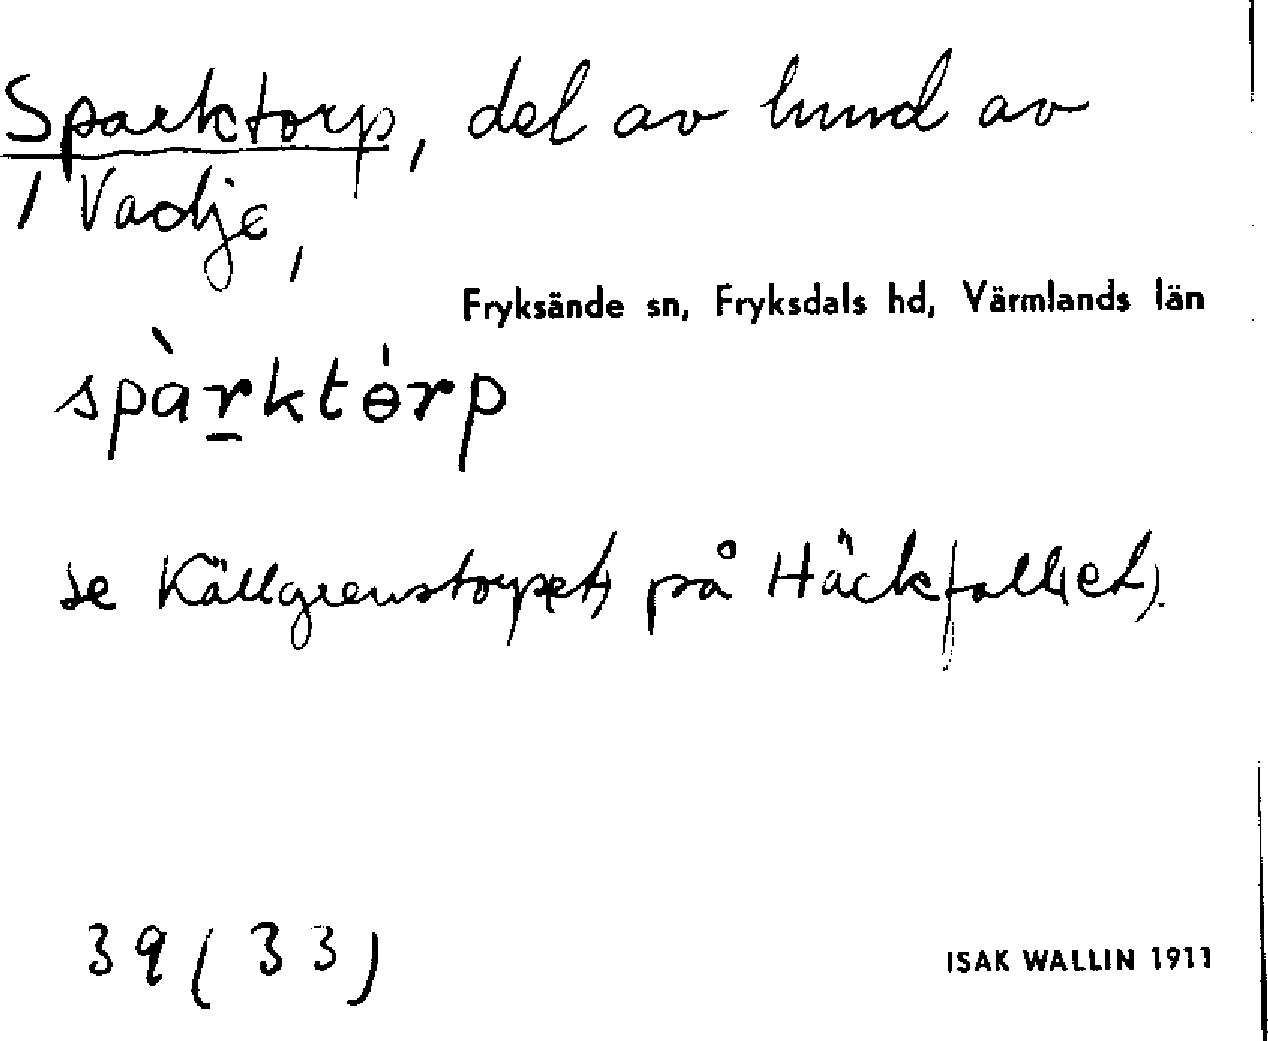 Sparktorp, del av hmd av
/ Vadje,
Fryksände sn, Fryksdals hd, Värmlands län
spàr̲któ̵rp
se Källgrenstorp(et) på Häckfall(et).
39 (33)
ISAK WALLIN 1911